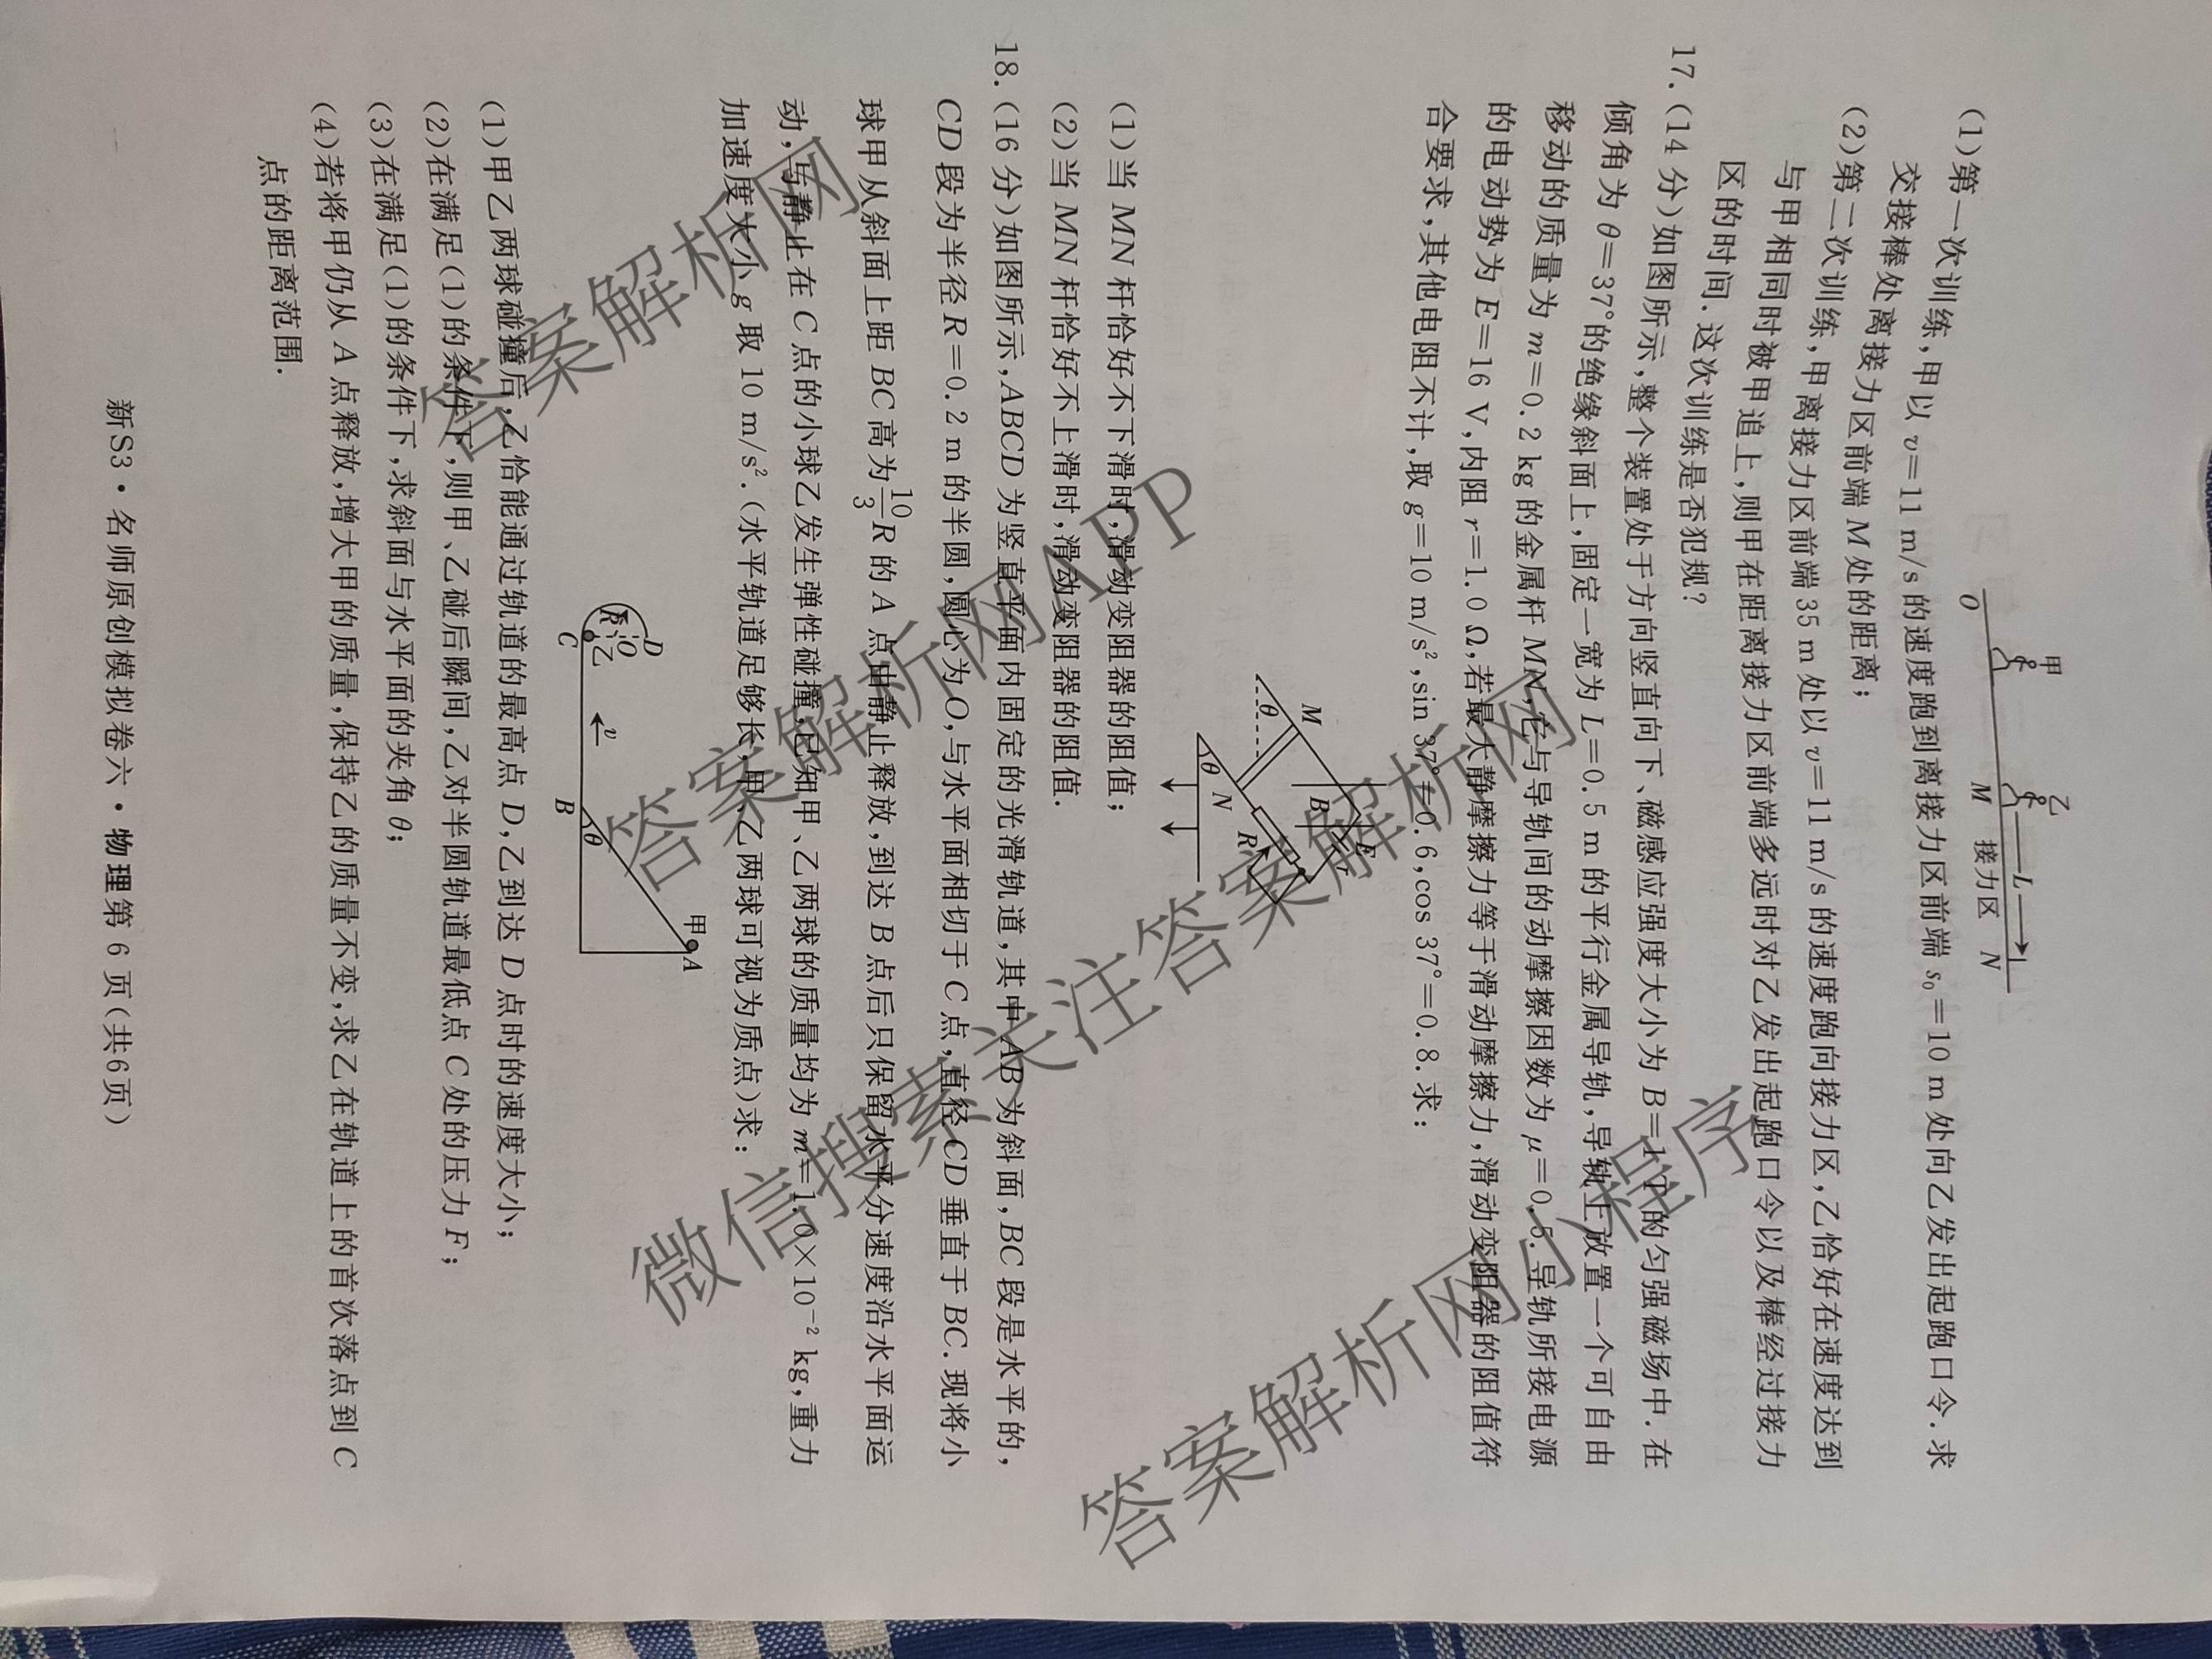 甲
乙
L
O
M
接力区
N
(1)第一次训练,甲以 v=11 m/s 的速度跑到离接力区前端 s₀=10 m 处向乙发出起跑口令.求
交接棒处离接力区前端 M 处的距离;
(2)第二次训练,甲离接力区前端 35 m 处以 v=11 m/s 的速度跑向接力区,乙恰好在速度达到
与甲相同时被甲追上,则甲在距离接力区前端多远时对乙发出起跑口令以及棒经过接力
区的时间.这次训练是否犯规?
17.(14 分)如图所示,整个装置处于方向竖直向下、磁感应强度大小为 B=1 T 的匀强磁场中.在
倾角为 θ=37°的绝缘斜面上,固定一宽为 L=0.5 m 的平行金属导轨,导轨上放置一个可自由
移动的质量为 m=0.2 kg 的金属杆 MN,它与导轨间的动摩擦因数为 μ=0.5.导轨所接电源
的电动势为 E=16 V,内阻 r=1.0 Ω,若最大静摩擦力等于滑动摩擦力,滑动变阻器的阻值符
合要求,其他电阻不计,取 g=10 m/s²,sin 37°=0.6,cos 37°=0.8.求:
M
B
E
r
θ
R
N
θ
(1)当 MN 杆恰好不下滑时,滑动变阻器的阻值;
(2)当 MN 杆恰好不上滑时,滑动变阻器的阻值.
18.(16 分)如图所示,ABCD 为竖直平面内固定的光滑轨道,其中 AB 为斜面,BC 段是水平的,
CD 段为半径 R=0.2 m 的半圆,圆心为 O,与水平面相切于 C 点,直径 CD 垂直于 BC.现将小
球甲从斜面上距 BC 高为 10/3 R 的 A 点由静止释放,到达 B 点后只保留水平分速度沿水平面运
动,与静止在 C 点的小球乙发生弹性碰撞,已知甲、乙两球的质量均为 m=1.0×10⁻² kg,重力
加速度大小 g 取 10 m/s².(水平轨道足够长,甲、乙两球可视为质点)求:
甲
A
D
O
R
乙
v
θ
C
B
(1)甲乙两球碰撞后,乙恰能通过轨道的最高点 D,乙到达 D 点时的速度大小;
(2)在满足(1)的条件下,则甲、乙碰后瞬间,乙对半圆轨道最低点 C 处的压力 F;
(3)在满足(1)的条件下,求斜面与水平面的夹角 θ;
(4)若将甲仍从 A 点释放,增大甲的质量,保持乙的质量不变,求乙在轨道上的首次落点到 C
点的距离范围.
新S3·名师原创模拟卷六·物理第 6 页(共6页)
答案解析网
答案解析网APP
答案解析网
微信搜索关注答案解析网
答案解析网小程序